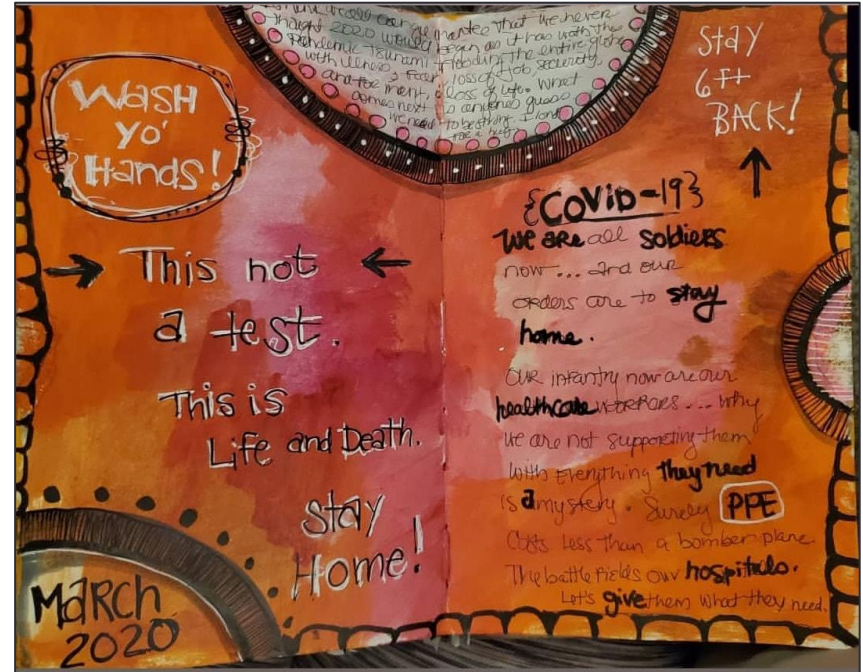 thought 2020 would began as it has with the
Pandemic Tsunami flooding the entire globe
with illness, Fear, loss of job security
and for many, loss of life. What
comes next is anyones guess
Wash
Yo'
Hands!
This not
a test.
This is
Life and Death.
Stay
Home!
March
2020
Stay
6 Ft
BACK!
{COVID-19}
We are all soldiers
now... and our
orders are to stay
home.
Our infantry now are our
healthcare workers... Why
we are not supporting them
with Everything they need
is a mystery. Surely PPE
Costs less than a bomber plane.
The battle fields our hospitals.
Let's give them what they need.